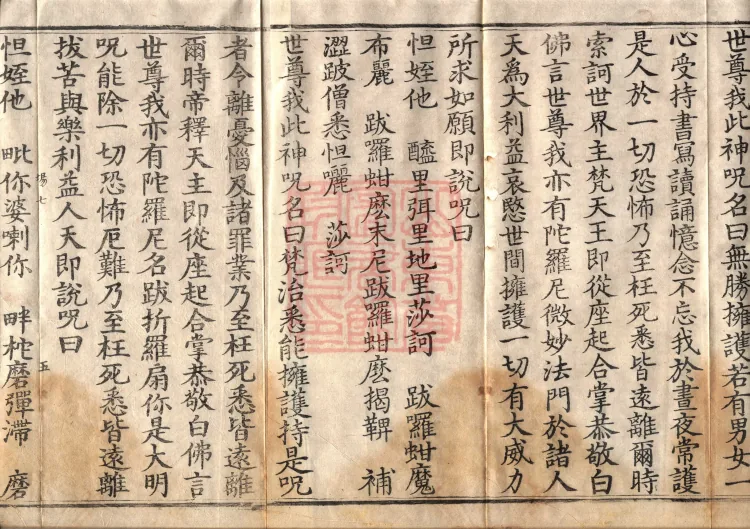 世尊我此神呪名曰無勝擁護若有男女一
心受持書寫讀誦憶念不忘我於晝夜常護
是人於一切恐怖乃至枉死悉皆遠離爾時
索訶世界主梵天王即從座起合掌恭敬白
佛言世尊我亦有陀羅尼微妙法門於諸人
天爲大利益哀愍世間擁護一切有大威力
所求如願即說呪曰
怛姪他 醯里弭里地里莎訶 跋羅蚶魔
布麗 跋羅蚶麽末尼跋羅蚶麽揭鞞 補
澀跛僧悉怛囇 莎訶
世尊我此神呪名曰梵治悉能擁護持是呪
者今離憂惱及諸罪業乃至枉死悉皆遠離
爾時帝釋天主即從座起合掌恭敬白佛言
世尊我亦有陀羅尼名跋折羅扇你是大明
呪能除一切恐怖厄難乃至枉死悉皆遠離
拔苦與樂利益人天即說呪曰
場七 五
怛姪他 毗你婆喇你 畔柁磨彈滯 磨